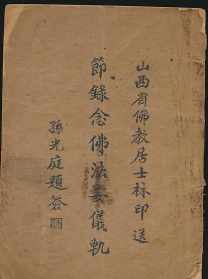 山西省佛教居士林印送
節錄念佛法要儀軌
孫光庭題簽